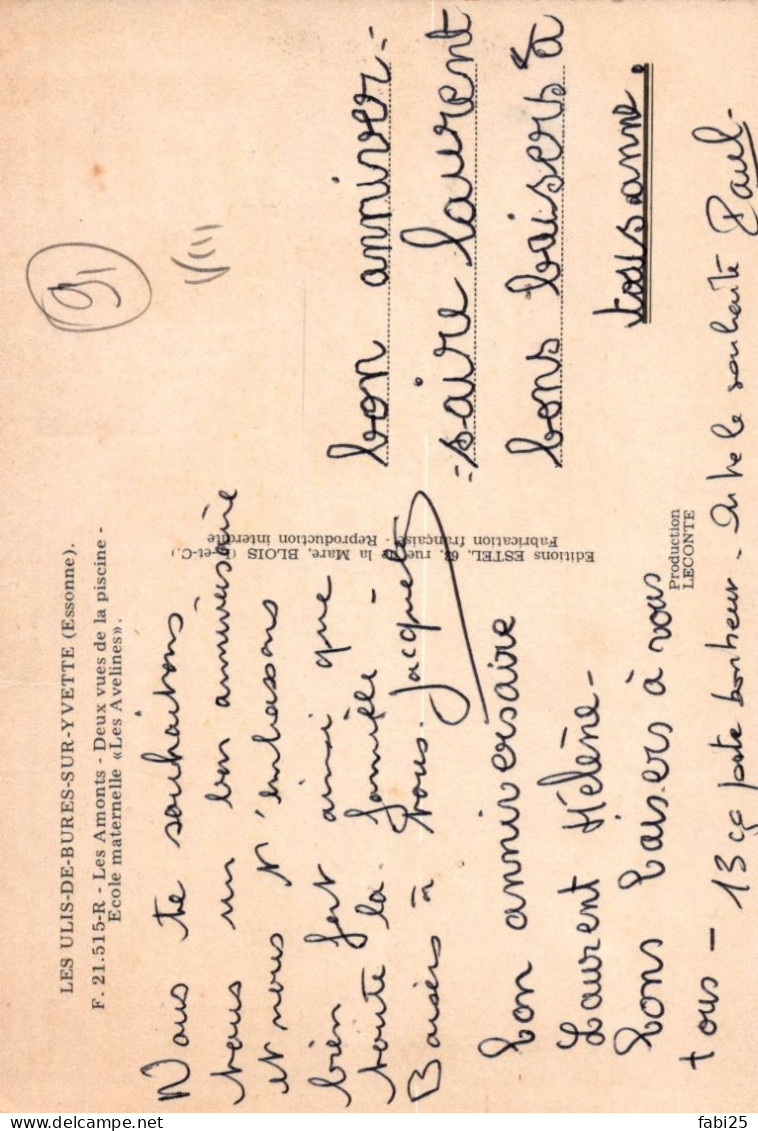 LES ULIS-DE-BURES-SUR-YVETTE (Essonne).
F. 21.515-R - Les Amonts - Deux vues de la piscine -
Ecole maternelle «Les Avelines».
Nous te souhaitons
tous un bon anniversaire
et nous t'embrassons
bien fort ainsi que
toute la famille -
Baisers à vous. Jacqueline
bon anniversaire
Laurent Hélène -
bons baisers à vous
tous -
13 ça porte bonheur - on te le souhaite Paul -
Editions ESTEL, 63, rue de la Mare, BLOIS (L-et-C.)
Fabrication française - Reproduction interdite
Production
LECONTE
91
bon anniver-
-saire laurent
bons baisers à
tous anne.
fabi25